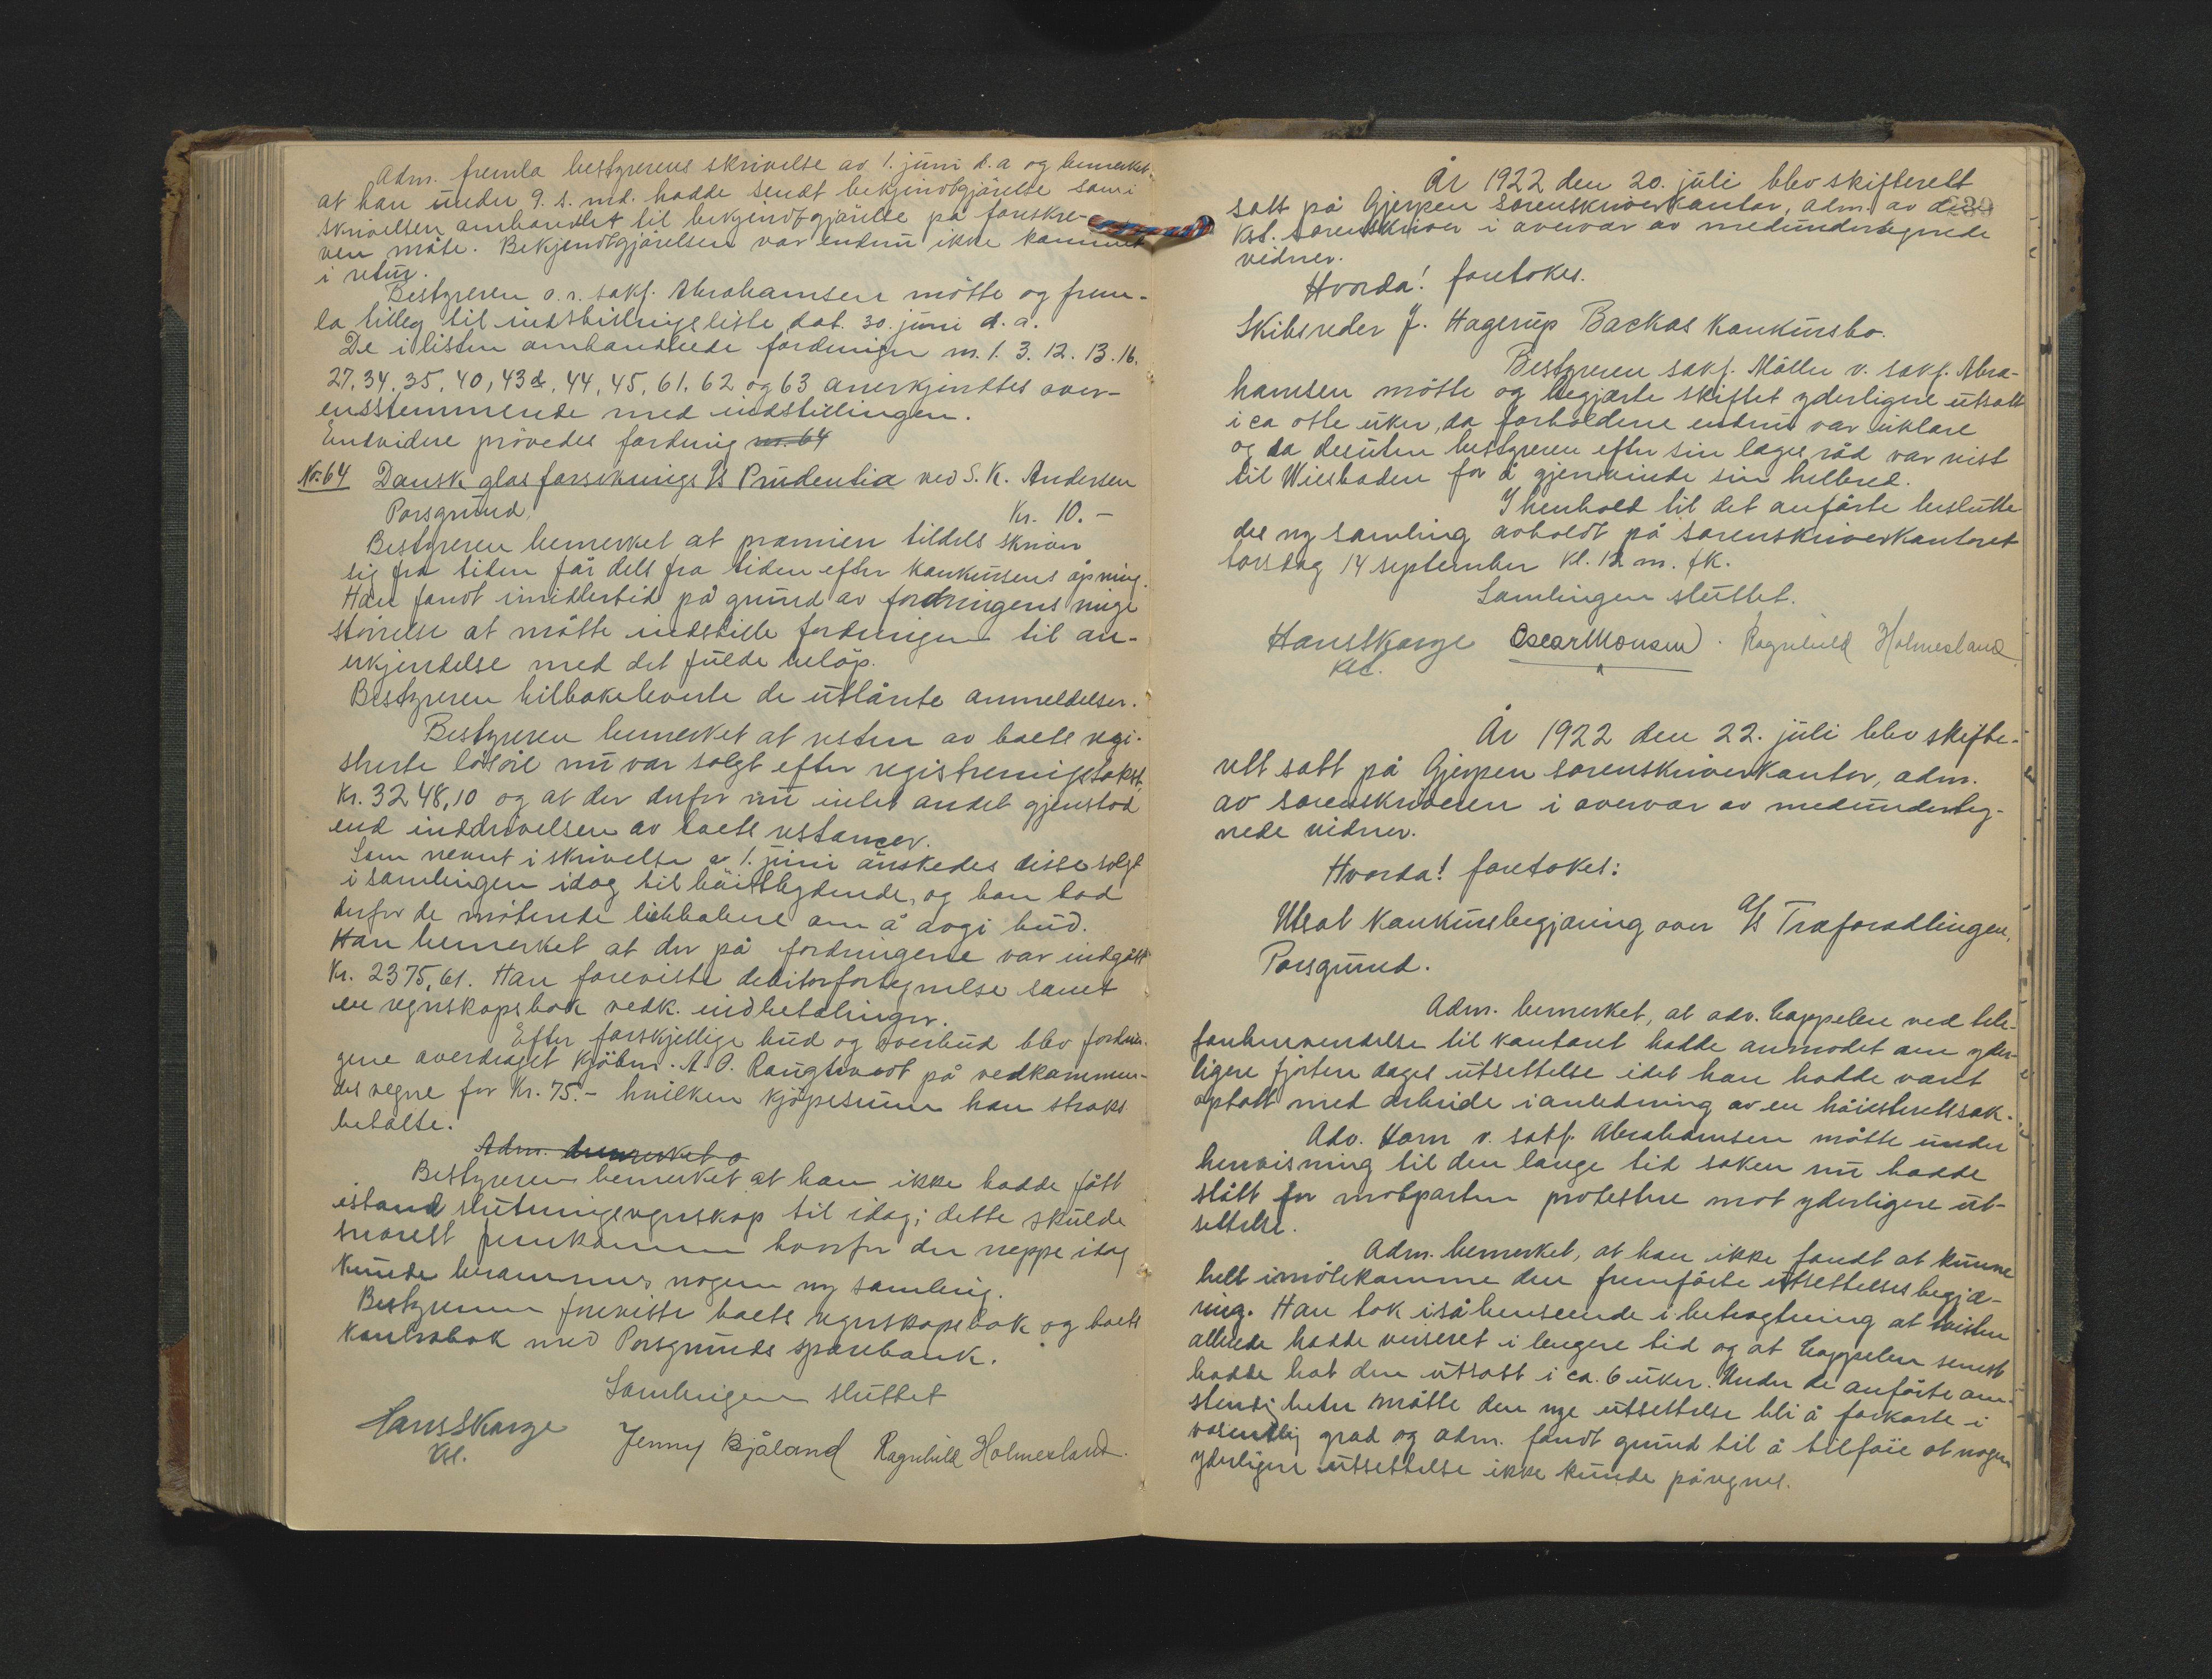 Adm. fremla bestyrerens skrivelse av 1. juni d.a og bemerket
at han under 9. s. md. hadde sendt bekjendtgjørelse som i
skrivelsen omhandlet til bekjendtgjørelse på forskre-
ven måte. Bekjendtgjørelsen var endnu ikke kommet
i retur.
Bestyreren o.r. sakf. Abrahamsen møtte og frem-
la tillæg til indstillingsliste dat. 30. juni d.a.
De i listen omhandlede fordringer nr. 1. 3. 12. 13. 16.
27. 34. 35. 40, 43 d. 44. 45. 61. 62 og 63 anerkjendtes over-
ensstemmende med indstillingen.
Endvidere prøvedes fordring nr. 64
Nr. 64 Dansk glasforsikrings A/s Prudentia ved S. K. Andersen
Porsgrund. Kr. 10.-
Bestyreren bemerket at præmien tildels skriver
sig fra tiden før dels fra tiden efter konkursens åpning.
Han fandt imidlertid på grund av fordringens ringe
størrelse at måtte indstille fordringen til an-
erkjendelse med det fulde beløp.
Bestyreren tilbakeleverte de utlånte anmeldelser.
Bestyreren bemerket at resten av boets regi-
strerte løsøre nu var solgt efter registreringstakst
Kr. 3248,10 og at der derfor nu intet andet gjenstod
end inddrivelsen av boets restancer.
Som nevnt i skrivelse av 1. juni ønskedes disse solgt
i samlingen idag til høistbydende, og han bad
derfor de møtende likhabere om å avgi bud.
Han bemerket at der på fordringene var indgått
Kr. 2375,61. Han foreviste debitorfortegnelse samt
en regnskapsbok vedk. indbetalinger.
Efter forskjellige bud og overbud blev fordrin-
gene overdraget kjøbm. A. O. Raugstvedt på vedkommen-
des vegne for Kr. 75.- hvilken kjøpesum han straks
betalte.
Adm. bemerket o
Bestyreren bemerket at han ikke hadde fått
istand slutningsregnskap til idag; dette skulde
snarest fremkomme hvorfor der neppe idag
kunde berammes nogen ny samling.
Bestyreren foreviste boets regnskapsbok og boets
kontrabok med Porsgrunds sparebank.
Samlingen sluttet
Hans Skarge Jenny Bjåland Ragnhild Holmesland.
kst.
År 1922 den 20. juli blev skifterett
satt på Gjerpen sorenskriverkontor, adm. av den
kst. sorenskriver i overvær av medundertegnede
vidner.
Hvorda! foretokes.
Skibsreder J. Hagerup Backas konkursbo.
Bestyreren sakf. Møller v. sakf. Abra-
hamsen møtte og begjærte skiftet yderligere utsatt
i ca otte uker, da forholdene endnu var uklare
og da desuten bestyreren efter sin læges råd var reist
til Wiesbaden for å gjenvinde sin helbred.
I henhold til det anførte beslutte-
des ny samling avholdt på sorenskriverkontoret
torsdag 14 september kl. 12 m. fk.
Samlingen sluttet.
Hans Skarge Oscar Monsen. Ragnhild Holmesland
kst.
År 1922 den 22. juli blev skifte-
rett satt på Gjerpen sorenskriverkontor, adm.
av sorenskriveren i overvær av medunderteg-
nede vidner.
Hvorda! foretokes:
Utsat konkursbegjæring over A/s Træforædlingen,
Porsgrund.
Adm. bemerket, at adv. Cappelen ved tele-
fonhenvendelse til kontoret hadde anmodet om yder-
ligere fjorten dages utsettelse idet han hadde været
optatt med arbeide i anledning av en høiesterettssak.
Adv. Horn v. sakf. Abrahamsen måtte under
henvisning til den lange tid saken nu hadde
stått for motparten protestere mot yderligere ut-
settelse.
Adm. bemerket, at han ikke fandt at kunne
helt imøtekomme den fremførte utsettelsesbegjæ-
ring. Han tok i så henseende i betragtning at tvisten
allerede hadde versert i lengere tid og at Cappelen senest
hadde hat den utsatt i ca. 6 uker. Under de anførte om-
stendigheter måtte den nye utsettelse bli å forkorte i
væsentlig grad og adm. fandt grund til å tilføie at nogen
yderligere utsettelse ikke kunde påregnes.